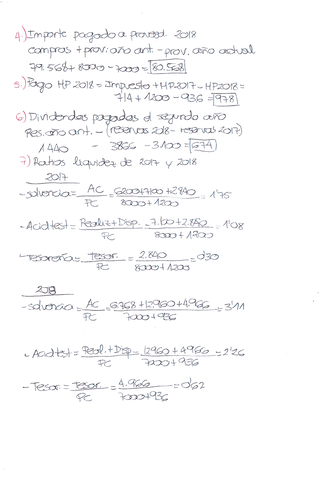 4.) Importe pagado a proveed. 2018
compras + prov. año ant - prov. año actual
79.568 + 8000 - 7000 = 80.568
5.) Pago HP 2018 = Impuesto + HP2017 - HP2018 =
714 + 1200 - 936 = 978
6) Dividendos pagados el segundo año
Res. año ant. - (reservas 2018 - reservas 2017)
1440 - 3866 - 3.100 = 674
7) Ratios liquidez de 2017 y 2018
2017
- solvencia = AC / PC = 6200+7100+2.840 / 8000+1200 = 1'75
- Acid test = Realiz+Disp / PC = 7.100+2.840 / 8000+1200 = 1'08
- Tesorería = Tesor. / PC = 2.840 / 8000+1200 = 0'30
2018
- solvencia = AC / PC = 6.768+12960+4966 / 7000+936 = 3'11
- Acid test = Real.+Disp / PC = 12960+4966 / 7000+936 = 2'26
- Tesor = Tesor / PC = 4.966 / 7000+936 = 0'62